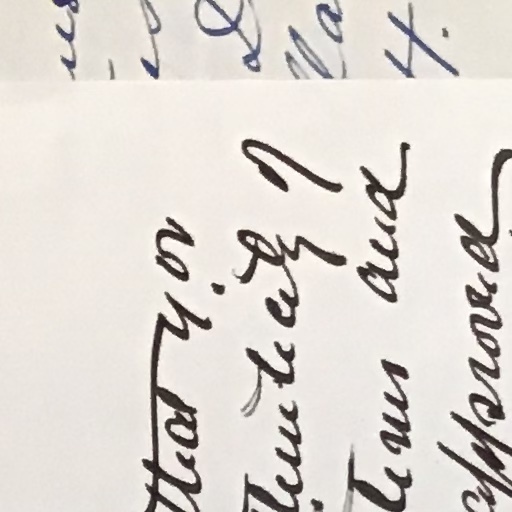 that y. or
thenticity of
terms and
approved
us
is
D
lla
4.